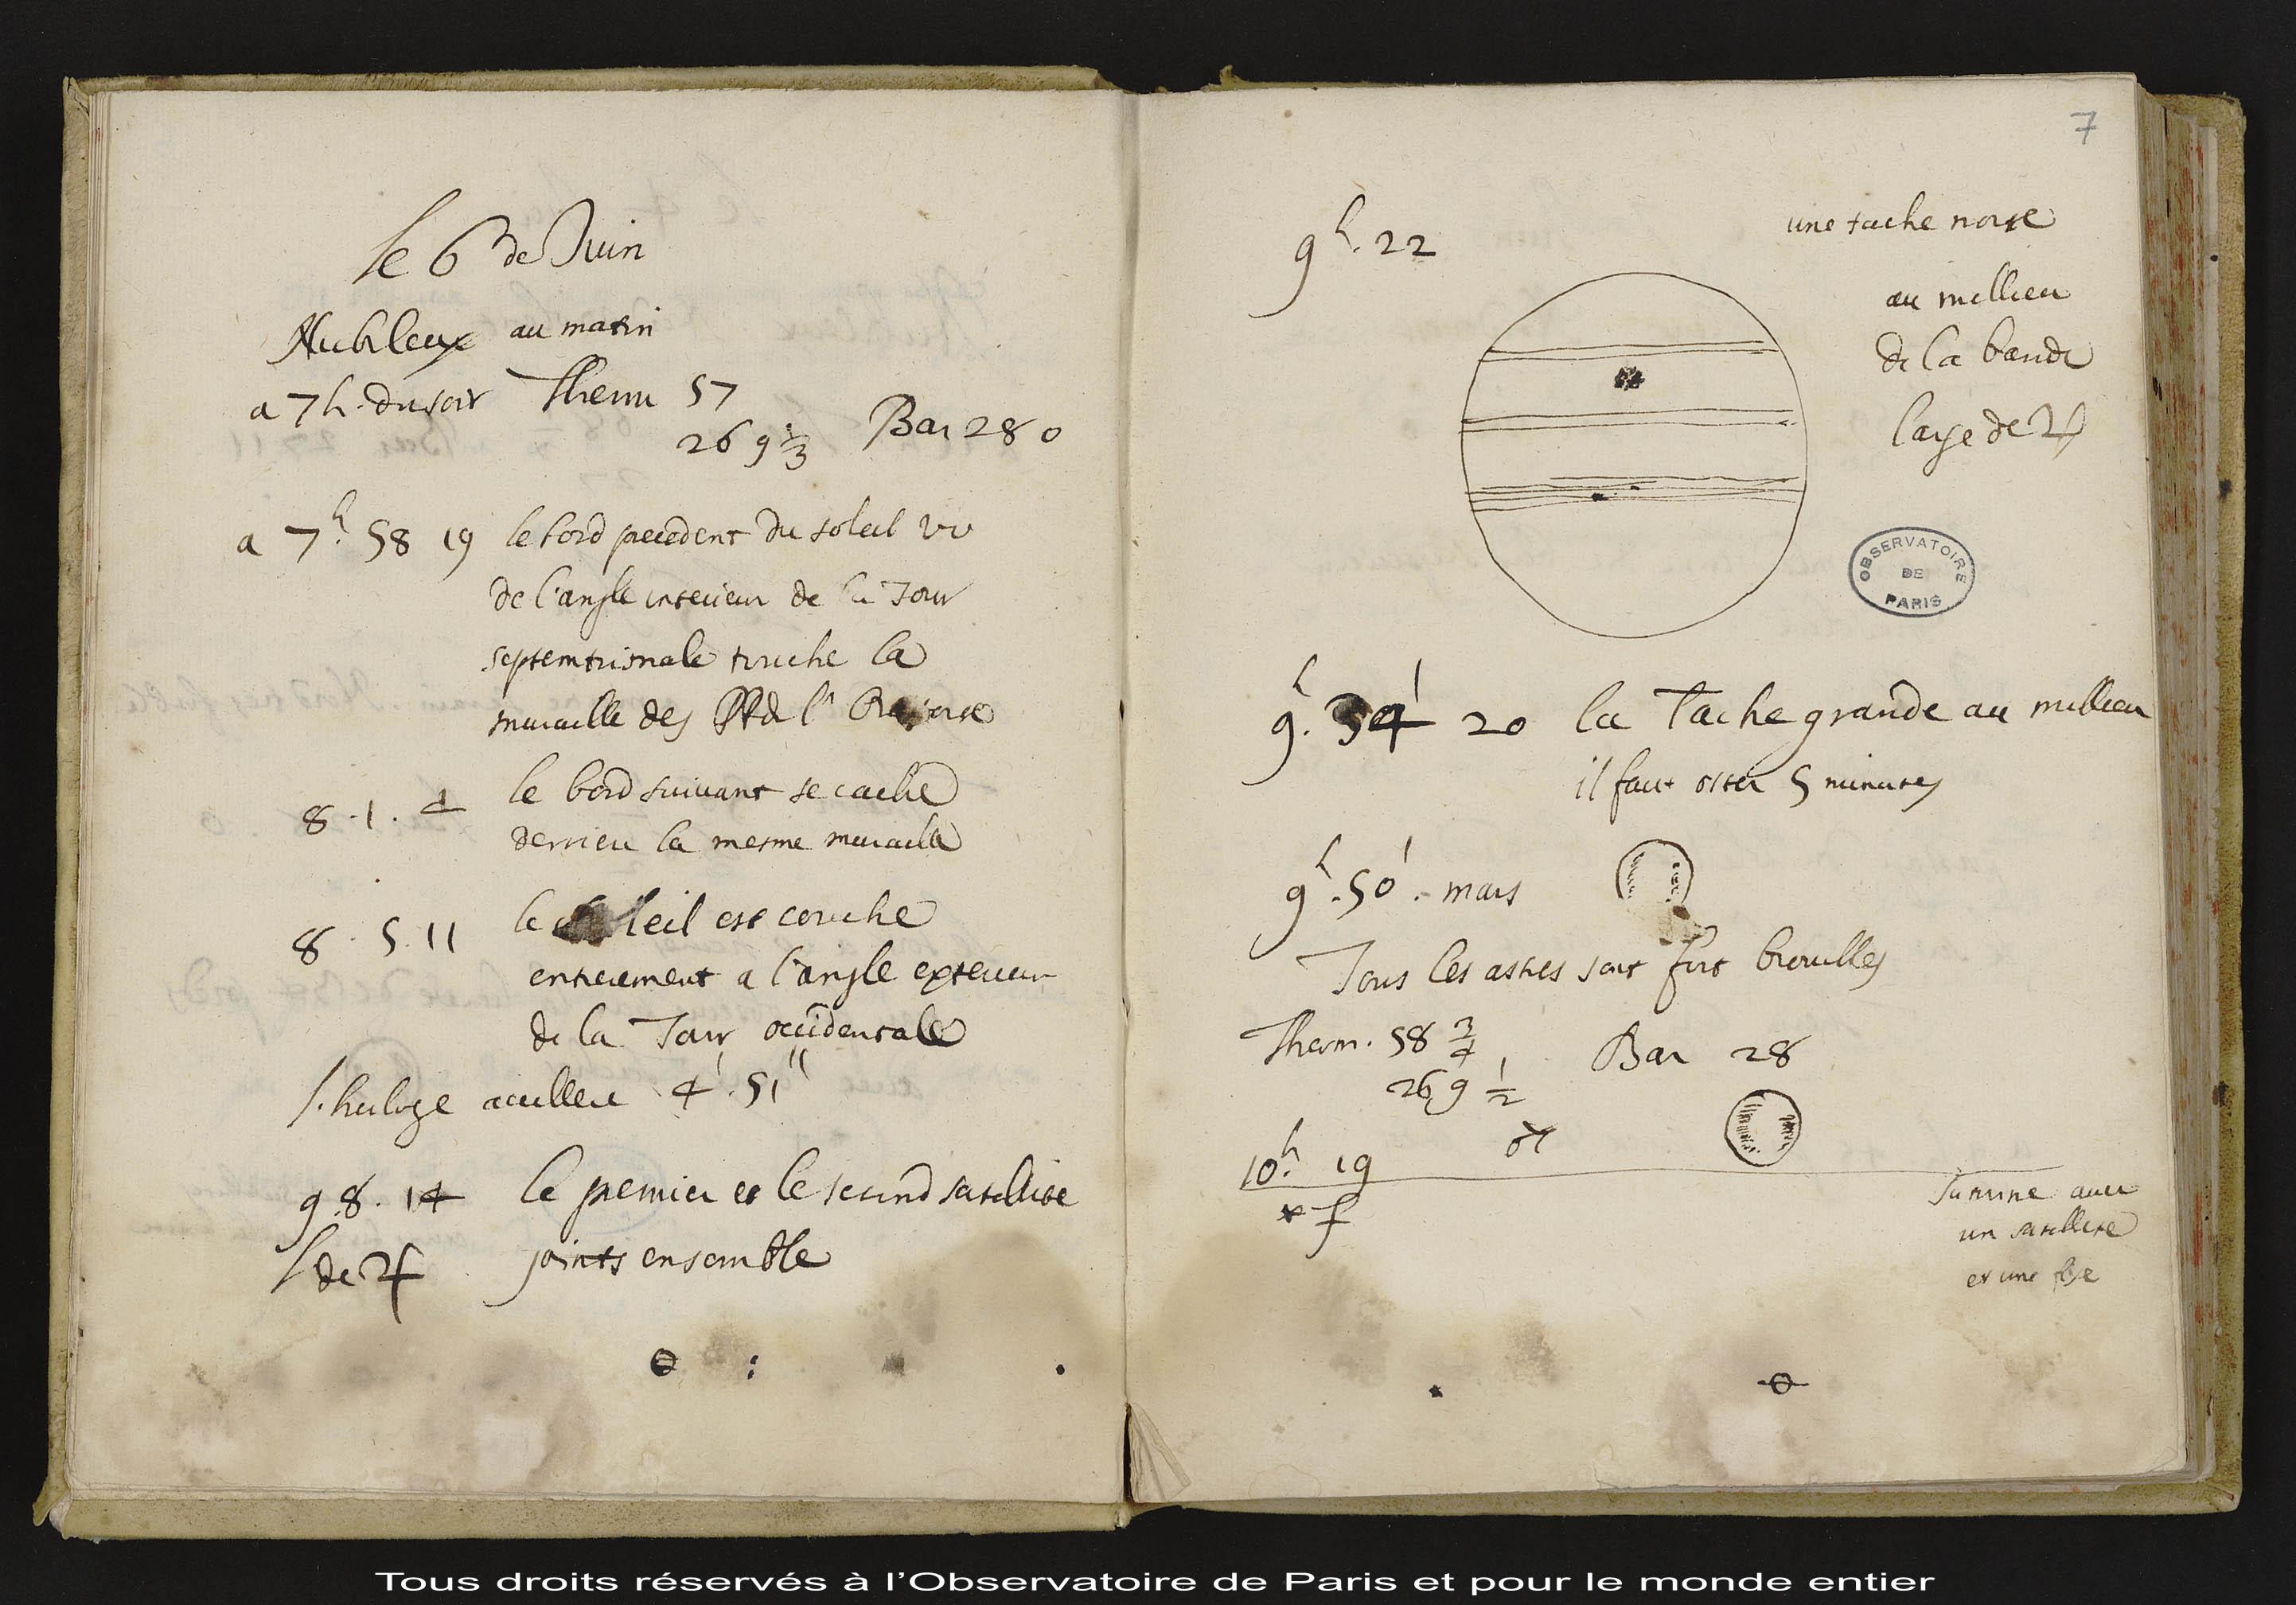 le 6 de Juin
Nubileux au matin
a 7 h. du soir Therm 57
26 9 1/3 Bar 28 0
a 7h 58 19 le bord precedent du soleil vu
de l'angle interieur de la Tour
septemtrionale touche la
muraille des PP de l'
8. 1. 4 le bord suivant se cache
derriere la mesme muraille
8. 5. 11 le soleil est couche
entierement a l'angle exterieur
de la Tour occidentale
l'horloge 4' 51"
9 8. 14 le premier et le second satellite
de ♃ joints ensemble
7
9h. 22
une tache noire
au millieu
de la bande
large de ♃
OBSERVATOIRE
DE
PARIS
9h. 34' 20 la Tache grande au millieu
il faut oster 5 minutes
9h. 50'. mars
Tous les astres sont fort brouilles
Therm. 58 3/4 Bar 28
26 9 1/2
10h. 19 ♂
Saturne avec
un satellite
et une fixe
Tous droits réservés à l'Observatoire de Paris et pour le monde entier